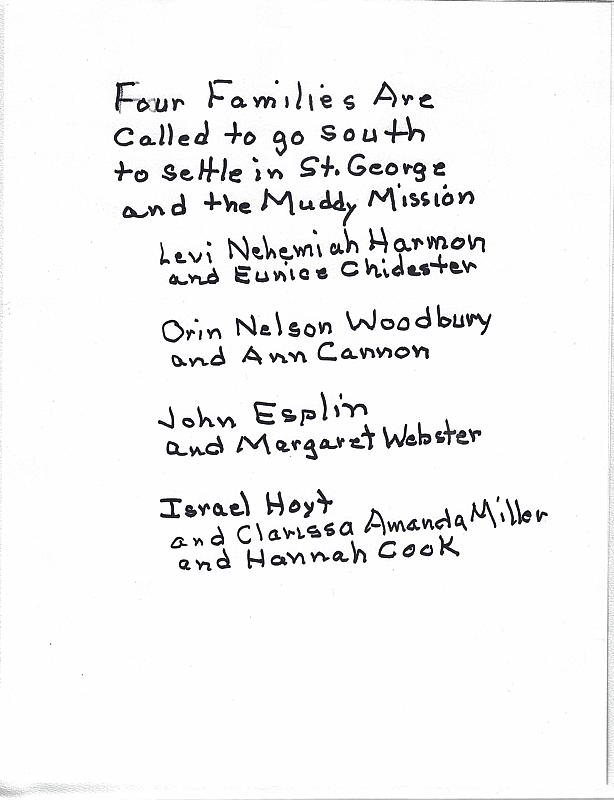 Four Families Are
Called to go south
to settle in St. George
and the Muddy Mission
Levi Nehemiah Harmon
and Eunice Chidester
Orin Nelson Woodbury
and Ann Cannon
John Esplin
and Margaret Webster
Israel Hoyt
and Clarissa Amanda Miller
and Hannah Cook